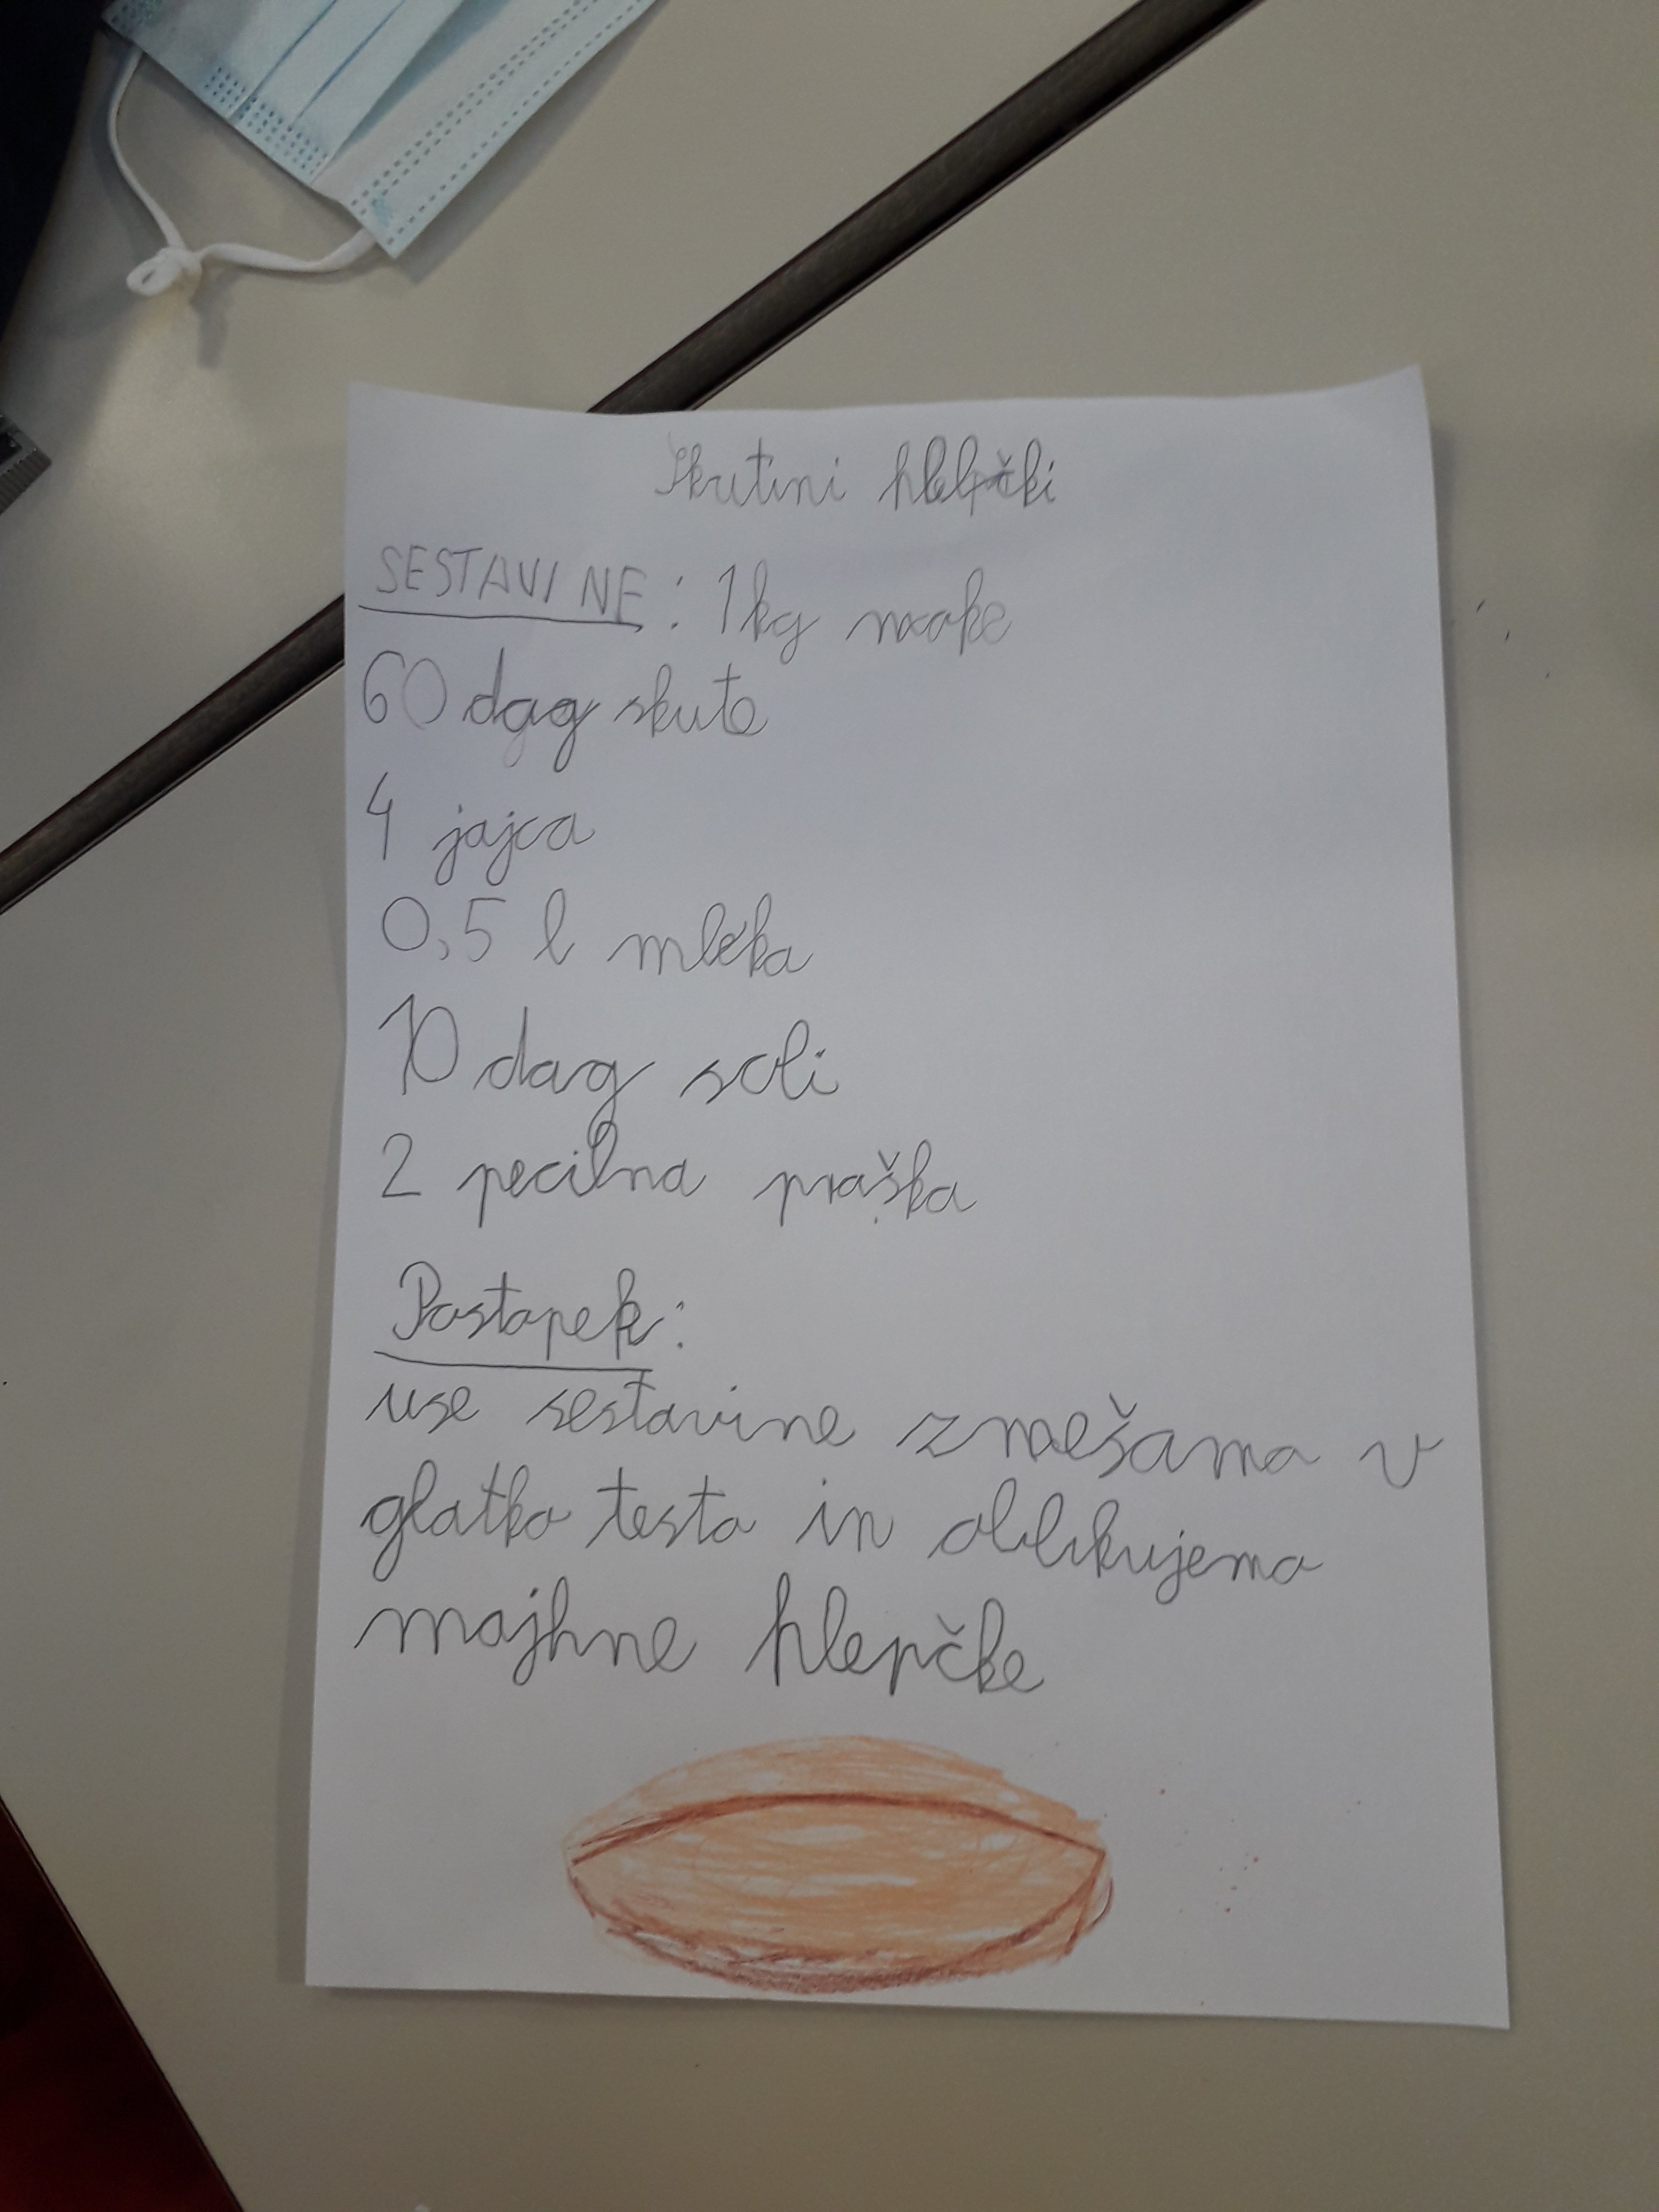 Skutini hlepčki
SESTAVINE: 1kg moke
60 dag skute
4 jajca
0,5 l mleka
10 dag soli
2 pecilna praška
Postopek:
use sestavine zmešamo v
glatko testo in oblikujemo
majhne hlepčke